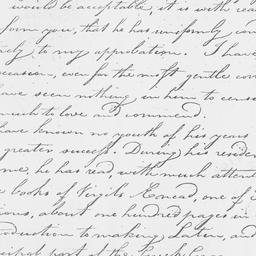 would be acceptable, it is with rea
form you, that he has uniformly con
ly to my approbation. I have
occasion, even for the most gentle cor
have seen nothing in him to censu
much to love and commend.
have known no youth of his years
greater success. During his residen
me, he has read, with much attent
books of Virgils Enead, one of
ious, about one hundred pages in
oduction to making Latin, and
cipal part of the